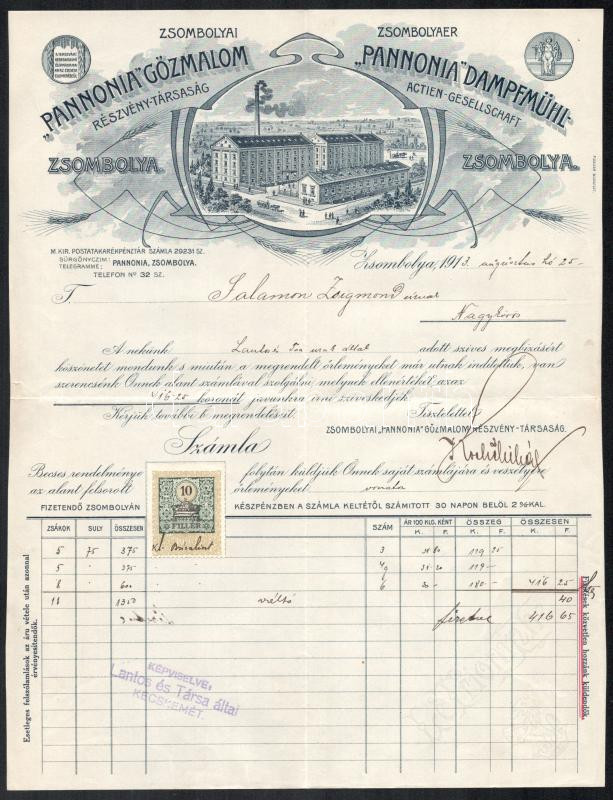 ZSOMBOLYAI
„PANNONIA" GŐZMALOM
RÉSZVÉNY-TÁRSASÁG
ZSOMBOLYA.
ZSOMBOLYAER
„PANNONIA" DAMPFMÜHL-
ACTIEN-GESELLSCHAFT
ZSOMBOLYA.
M. KIR. POSTATAKARÉKPÉNZTÁR SZÁMLA 29231 SZ.
SÜRGÖNYCZIM:
TELEGRAMME:
PANNONIA, ZSOMBOLYA.
TELEFON Nº 32 SZ.
Zsombolya, 1913. augusztus hó 25-
T. Salamon Zsigmond úrnak
Nagykőrös
A nekünk Lantos és Társa urak által adott szíves megbízásért
köszönetet mondunk s miután a megrendelt őrleményeket már utnak indítottuk, van
szerencsénk Önnek alant számlával szolgálni, melynek ellenértékét azaz
416 25 koronát javunkra irni szíveskedjék
Kérjük további b. megrendeléseit Tisztelettel
ZSOMBOLYAI „PANNONIA" GŐZMALOM RÉSZVÉNY-TÁRSASÁG.
Számla
Becses rendelménye folytán küldjük Önnek saját számlájára és veszélyére
az alant felsorolt őrleményeket vonata
10
FILLÉR
FIZETENDŐ ZSOMBOLYÁN KÉSZPÉNZBEN A SZÁMLA KELTÉTŐL SZÁMITOTT 30 NAPON BELÜL 2 %-KAL.
ZSÁKOK SULY ÖSSZESEN SZÁM ÁR 100 KLG.KÉNT ÖSSZEG ÖSSZESEN
K. F. K. F. K. F.
5 75 375 3 31 80 119 25
5 " 375 31 20 119 —
8 " 600 6 30 — 180 — 416 25
18 1350 váltó 40
fizetve 416 65
KÉPVISELVE:
Lantos és Társa által
KECSKEMÉT.
Esetleges felszólamlások az áru vétele után azonnal
érvényesítendők.
Fizetések közvetlen hozzánk küldendők.